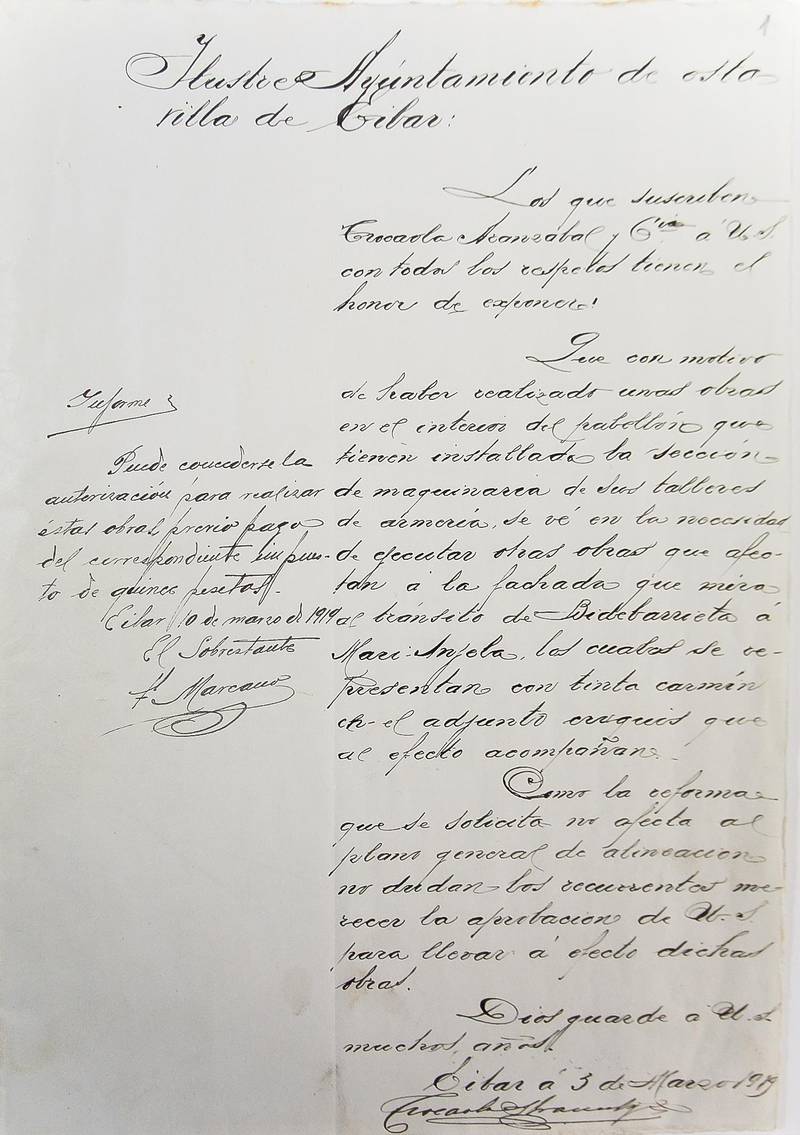 1
Ilustre Ayúntamiento de esta
villa de Eibar:
Los que suscriben
Trocaola Aranzábal y Cía á U.S.
con todos los respetos tienen el
honor de exponer:
Que con motivo
de haber realizado unas obras
en el interior del pabellón que
tienen installada la sección
de maquinaria de sus talleres
de armería, se vé en la necesidad
de ejecutar otras obras que afec-
tan á la fachada que mira
al tránsito de Bidebarrieta á
Mari-Anjela, las cuales se re-
presentan con tinta carmín
en el adjunto croquis que
al efecto acompañan.
Como la reforma
que se solicita no afecta al
plano general de alineación
no dudan los recurrentes me-
recer la aprobacion de U.S.
para llevar á efecto dichas
obras.
Dios guarde á U.S.
muchos años.
Eibar á 3 de Marzo 1919
Trocaola Aranzabal
Informe
Puede concederse la
autorización para realizar
éstas obras, previo pago
del correspondiente impues-
to de quince pesetas.
Eibar 10 de marzo de 1919
El Sobrestante